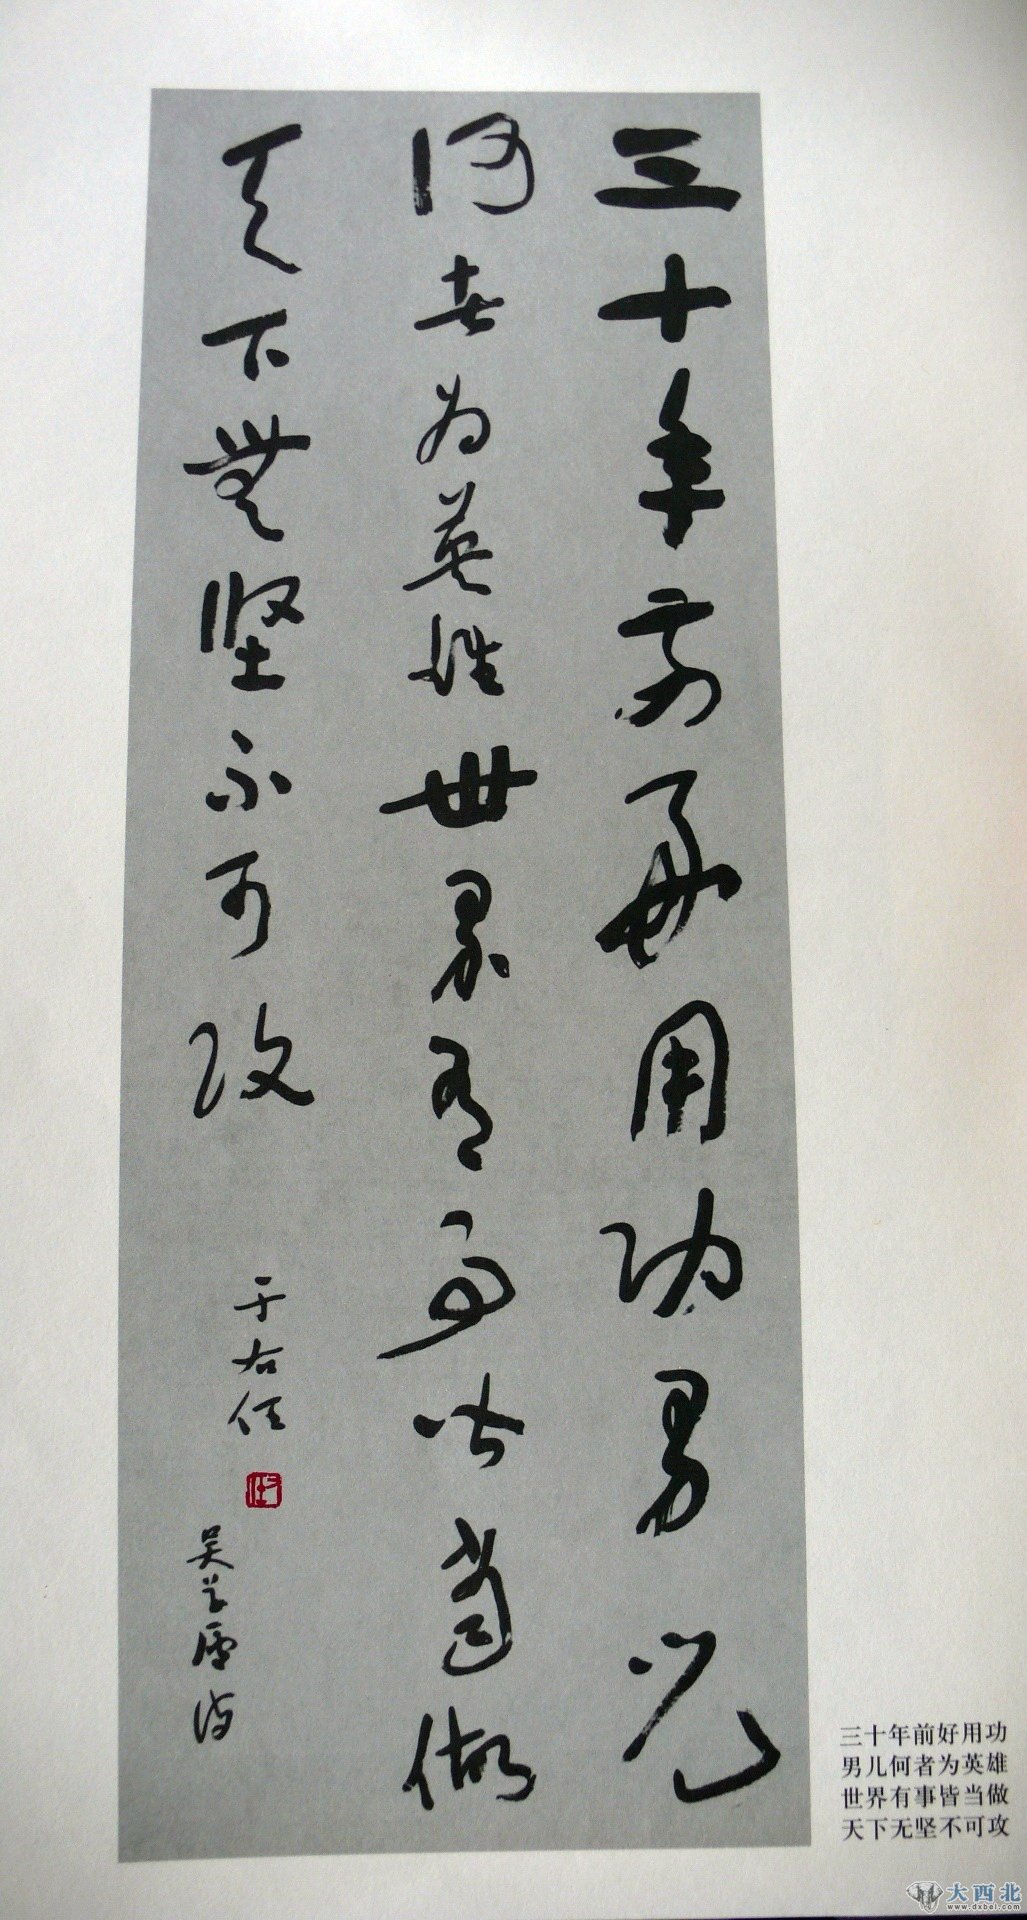 三十年前好用功男児
何者为英雄世界有事皆當做
天下無坚不可攻
于右任
吴芝庐诗
三十年前好用功
男儿何者为英雄
世界有事皆当做
天下无坚不可攻
大西北
www.dxbei.com